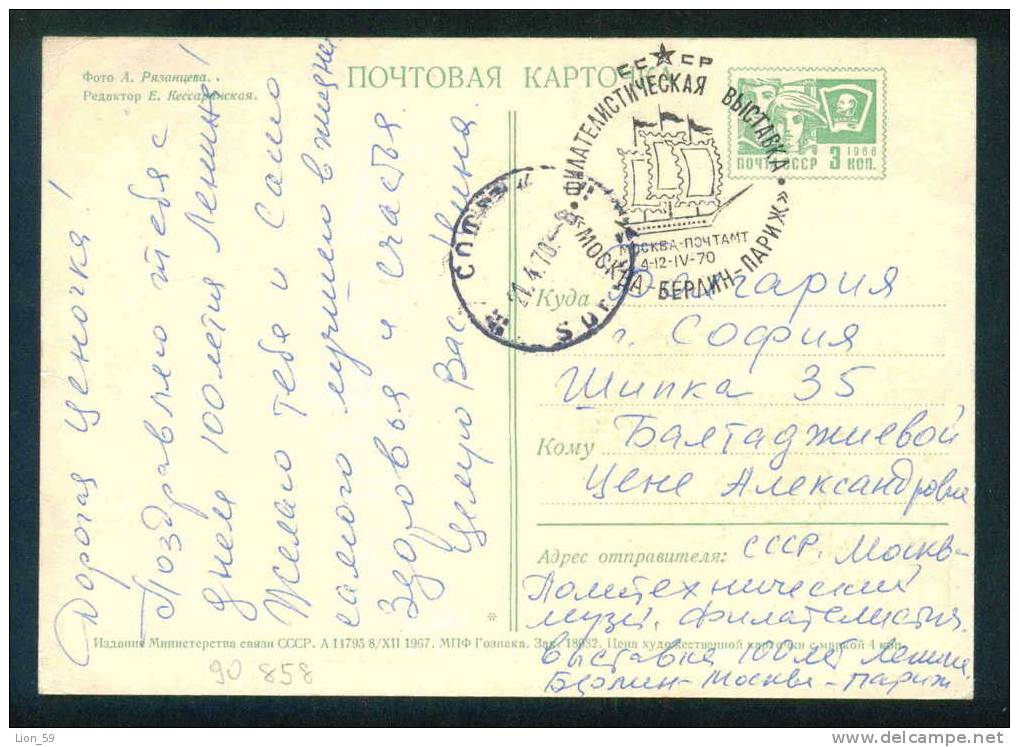 Фото А. Рязанцева.
Редактор Е. Кессаринская.
ПОЧТОВАЯ КАРТОЧКА
СССР
ФИЛАТЕЛИСТИЧЕСКАЯ ВЫСТАВКА
«МОСКВА-БЕРЛИН-ПАРИЖ»
МОСКВА-ПОЧТАМТ
4-12-IV-70
1966
ПОЧТА СССР 3 КОП.
21.4.70
Дорогая Ценочка!
Поздравляю тебя с
днем 100летия Ленина!
Желаю тебе и Сашо
самого лучшего в жизне
Здоровья и счастья.
Целую Вас
Куда Болгария
г. София
Шипка 35
Кому Балтаджиевой
Цене Александровне
Адрес отправителя: СССР. Москва
Политехнический
музей. Филателистич.
выставка 100 лет Ленина
Берлин-Москва-Париж
Издание Министерства связи СССР. А 11795 8/XII 1967. МПФ Гознака. Зак. 18982. Цена художественной карточки с маркой 4 коп.
90 858
Lion_59
www.delcampe.net